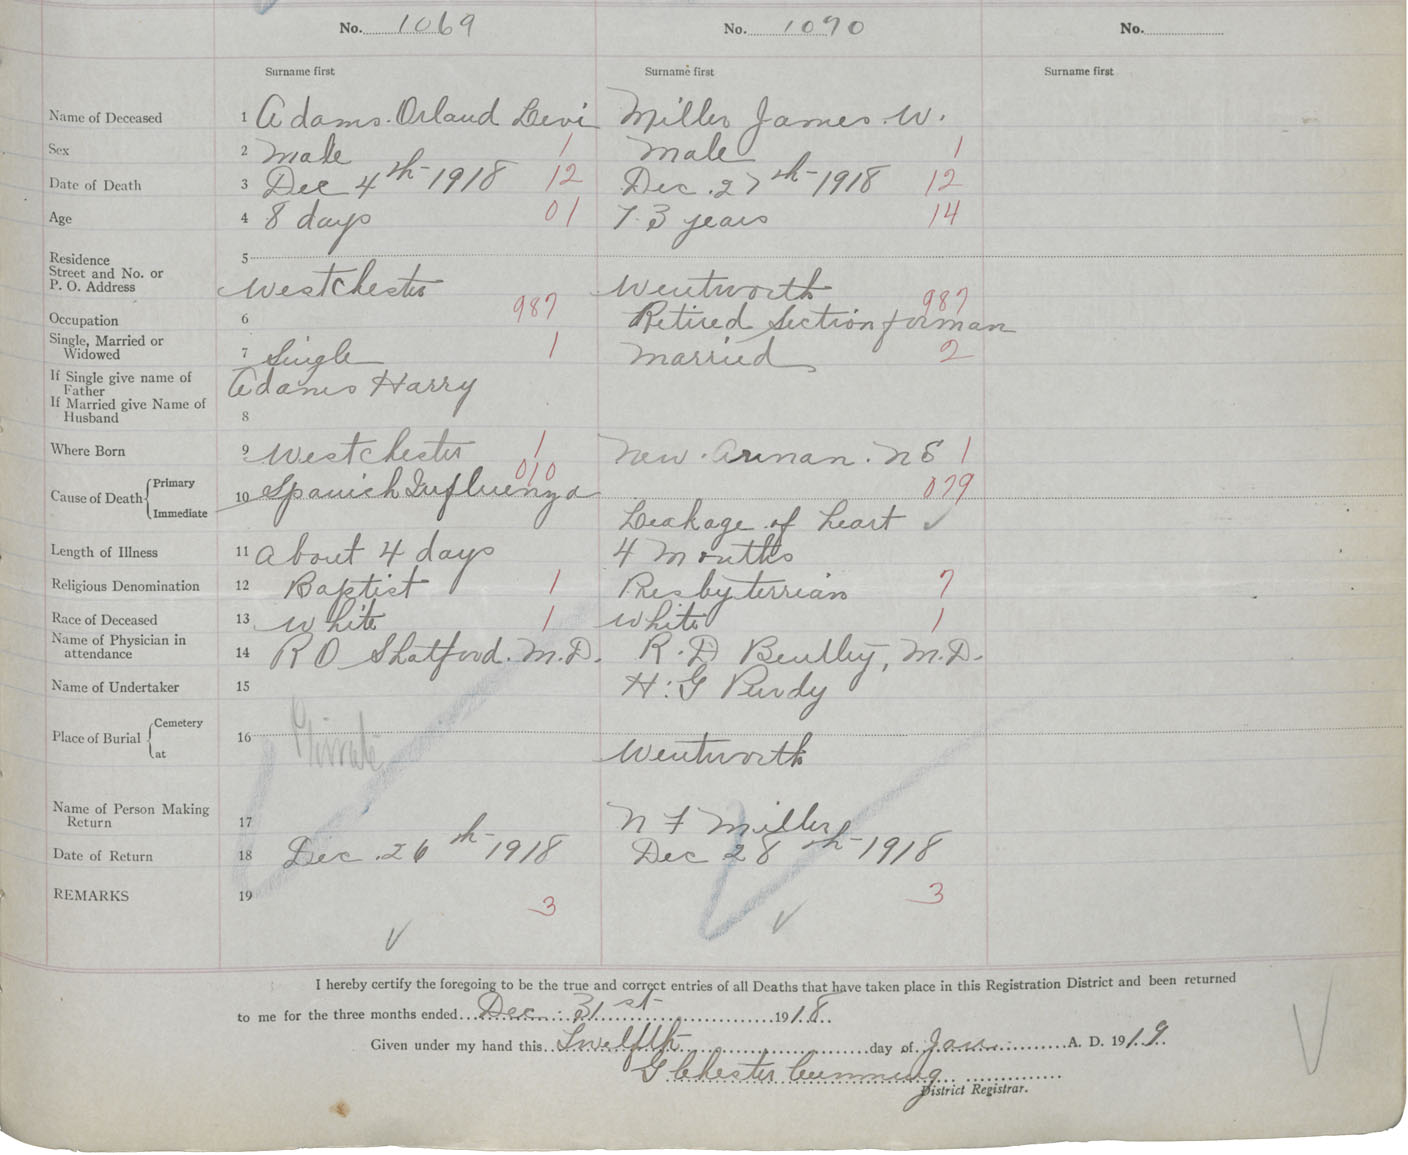 No. 1069 No. 1090 No.
Surname first Surname first Surname first
Name of Deceased 1 Adams. Orland Levi Miller James. W.
Sex 2 male 1 male 1
Date of Death 3 Dec 4th 1918 12 Dec. 27th 1918 12
Age 4 8 days 01 73 years 14
Residence 5
Street and No. or
P. O. Address Westchester Wentworth
987 987
Occupation 6 Retired Section forman
Single, Married or
Widowed 7 Single 1 Married 2
If Single give name of
Father Adams Harry
If Married give Name of
Husband 8
Where Born 9 Westchester 1 New. Annan. N S 1
010 079
Cause of Death Primary 10 Spanish Influenza
Immediate Leakage of heart
Length of Illness 11 about 4 days 4 months
Religious Denomination 12 Baptist 1 Presbyterrian 7
Race of Deceased 13 White 1 White 1
Name of Physician in
attendance 14 R O Shatford. M.D. R. D Bentley, M.D.
Name of Undertaker 15 H. G Purdy
Place of Burial Cemetery 16 Private
at Wentworth
Name of Person Making
Return 17 N F Miller
Date of Return 18 Dec. 26th 1918 Dec 28th 1918
REMARKS 19 3 3
I hereby certify the foregoing to be the true and correct entries of all Deaths that have taken place in this Registration District and been returned
to me for the three months ended Dec. 31st 1918.
Given under my hand this Twelfth day of Jan. A. D. 1919.
G Chester Cumming
District Registrar.